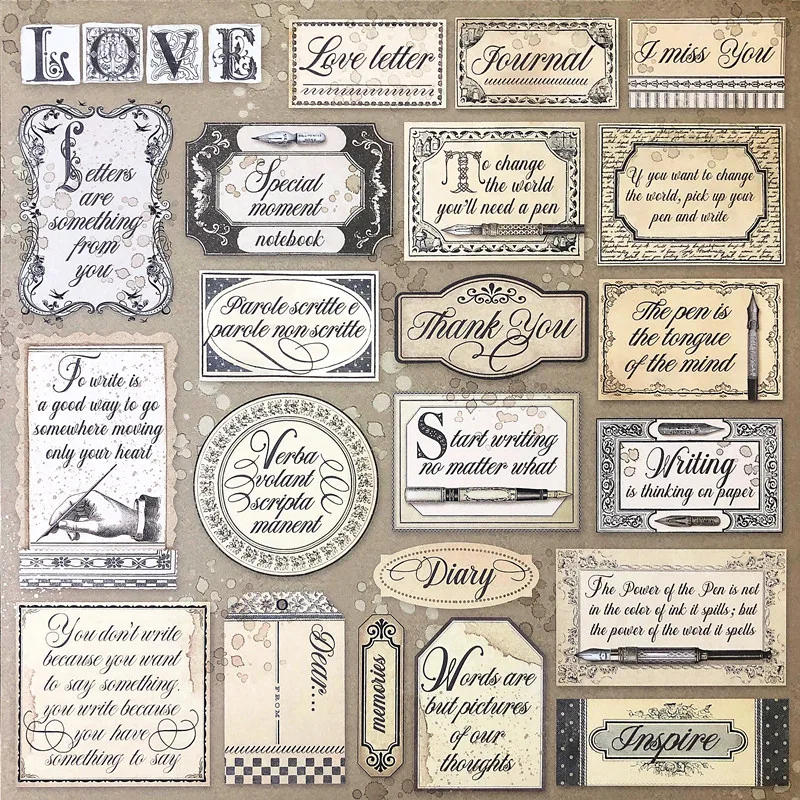 LOVE
Love letter
Journal
I miss You
Letters
are
something
from
you
Special
moment
notebook
To change
the world
you'll need a pen
If you want to change
the world, pick up your
pen and write
Parole scritte e
parole non scritte
Thank You
The pen is
the tongue
of the mind
To write is
a good way to go
somewhere moving
only your heart
Verba
volant
scripta
manent
Start writing
no matter what
Writing
is thinking on paper
Diary
The Power of the Pen is not
in the color of ink it spills; but
the power of the word it spells
You don't write
because you want
to say something.
you write because
you have
something to say
Dear....
FROM
memories
Words are
but pictures
of our
thoughts
Inspire